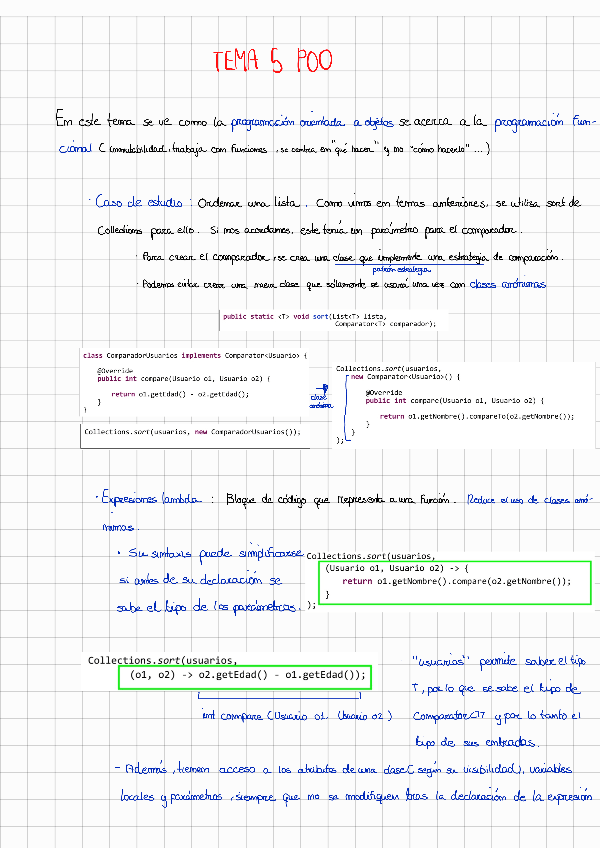 TEMA 5 POO
En este tema se ve como la programación orientada a objetos se acerca a la programación fun-
cional (inmutabilidad, trabaja con funciones, se centra en "qué hacer" y no "cómo hacerlo" ...)
· Caso de estudio : Ordenar una lista. Como vimos en temas anteriores, se utiliza sort de
Collections para ello. Si nos acordamos, este tenía un parámetro para el comparador.
· Para crear el comparador, se crea una clase que implemente una estrategia de comparación.
patrón estrategia
· Podemos evitar crear una nueva clase que solamente se usará una vez con clases anónimas
public static <T> void sort(List<T> lista,
Comparator<T> comparador);
class ComparadorUsuarios implements Comparator<Usuario> {
@Override
public int compare(Usuario o1, Usuario o2) {
return o1.getEdad() - o2.getEdad();
}
}
Collections.sort(usuarios, new ComparadorUsuarios());
clase
anónima
Collections.sort(usuarios,
new Comparator<Usuario>() {
@Override
public int compare(Usuario o1, Usuario o2) {
return o1.getNombre().compareTo(o2.getNombre());
}
}
);
· Expresiones lambda : Bloque de código que representa a una función. Reduce el uso de clases anó-
nimas.
· Su sintaxis puede simplificarse
si antes de su declaración se
sabe el tipo de los parámetros.
Collections.sort(usuarios,
(Usuario o1, Usuario o2) -> {
return o1.getNombre().compare(o2.getNombre());
}
);
Collections.sort(usuarios,
(o1, o2) -> o2.getEdad() - o1.getEdad());
int compare (Usuario o1, Usuario o2)
"usuarios" permite saber el tipo
T, por lo que se sabe el tipo de
Comparator<T> y por lo tanto el
tipo de sus entradas.
- Además, tienen acceso a los atributos de una clase (según su visibilidad), variables
locales y parámetros, siempre que no se modifiquen tras la declaración de la expresión